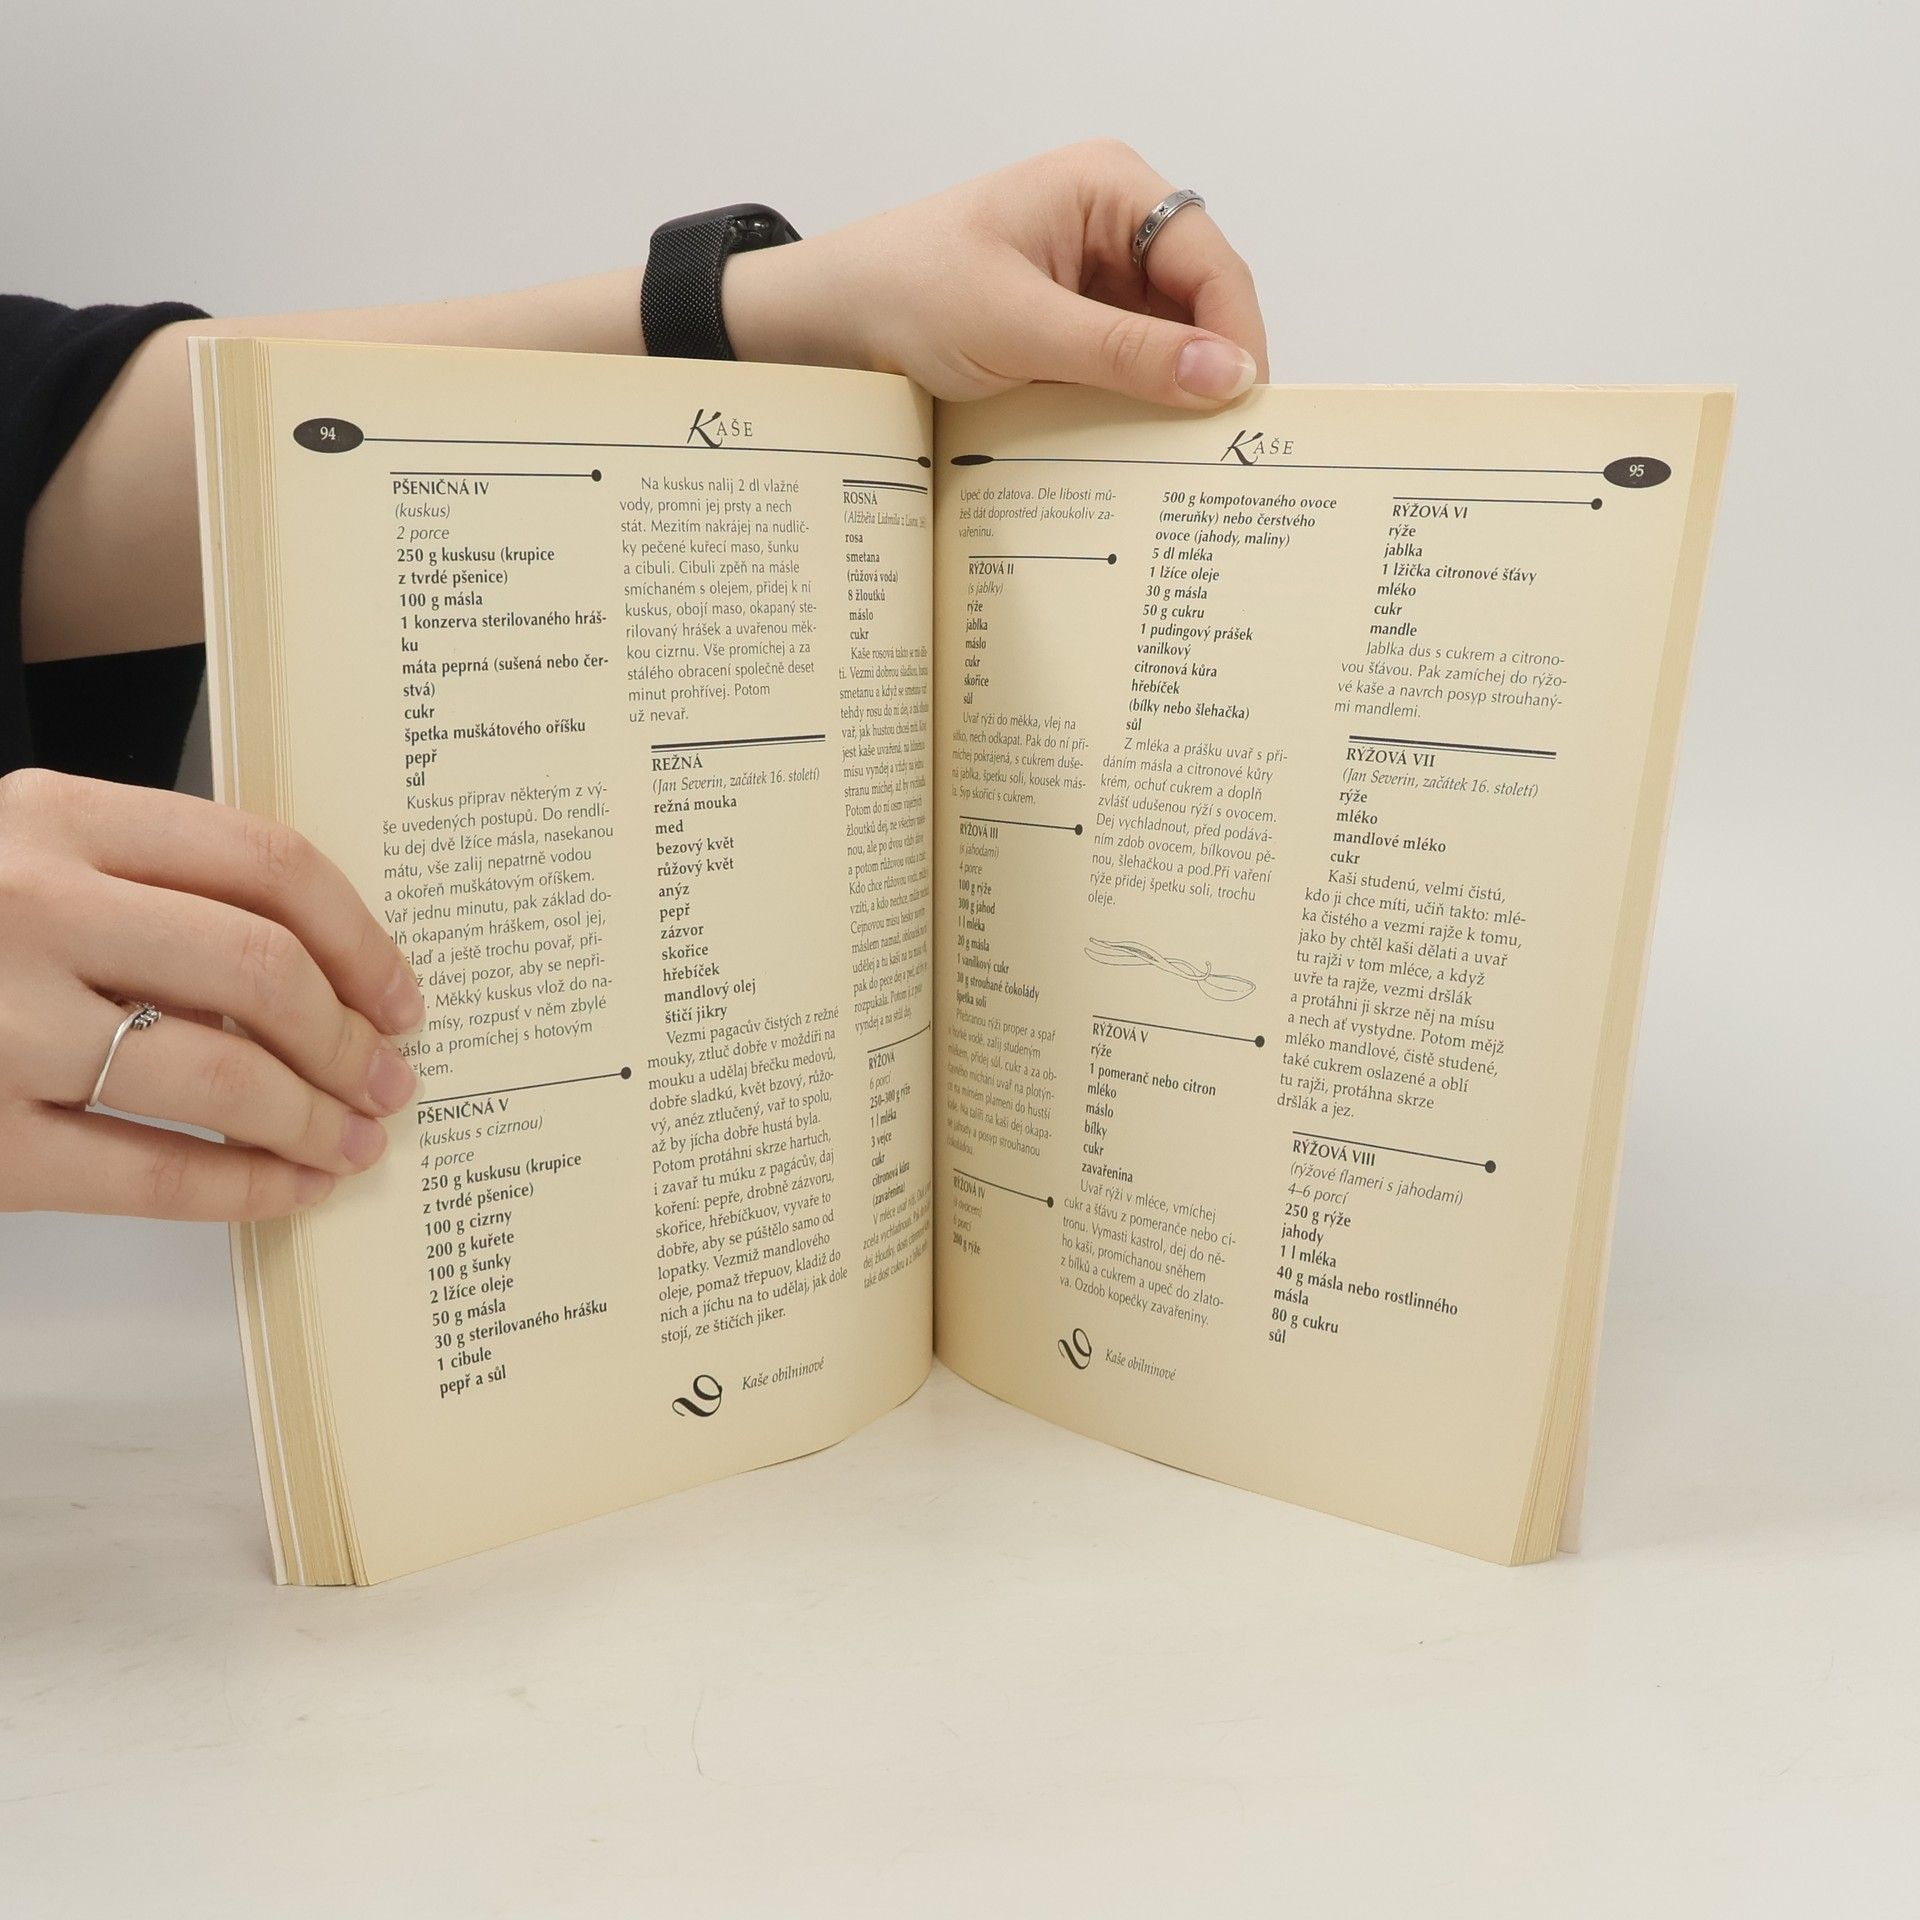 94
KAŠE
PŠENIČNÁ IV
(kuskus)
2 porce
250 g kuskusu (krupice
z tvrdé pšenice)
100 g másla
1 konzerva sterilovaného hráš-
ku
máta peprná (sušená nebo čer-
stvá)
cukr
špetka muškátového oříšku
pepř
sůl
Kuskus připrav některým z vý-
še uvedených postupů. Do rendlí-
ku dej dvě lžíce másla, nasekanou
mátu, vše zalij nepatrně vodou
a okořeň muškátovým oříškem.
Vař jednu minutu, pak základ do-
okapaným hráškem, osol jej,
a ještě trochu povař, při-
dávej pozor, aby se nepři-
Měkký kuskus vlož do na-
mísy, rozpusť v něm zbylé
a promíchej s hotovým
PŠENIČNÁ V
(kuskus s cizrnou)
4 porce
250 g kuskusu (krupice
z tvrdé pšenice)
100 g cizrny
200 g kuřete
100 g šunky
2 lžíce oleje
50 g másla
30 g sterilovaného hrášku
1 cibule
pepř a sůl
Na kuskus nalij 2 dl vlažné
vody, promni jej prsty a nech
stát. Mezitím nakrájej na nudlič-
ky pečené kuřecí maso, šunku
a cibuli. Cibuli zpěň na másle
smíchaném s olejem, přidej k ní
kuskus, obojí maso, okapaný ste-
rilovaný hrášek a uvařenou měk-
kou cizrnu. Vše promíchej a za
stálého obracení společně deset
minut prohřívej. Potom
už nevař.
REŽNÁ
(Jan Severin, začátek 16. století)
režná mouka
med
bezový květ
růžový květ
anýz
pepř
zázvor
skořice
hřebíček
mandlový olej
štičí jikry
Vezmi pagačův čistých z režné
mouky, ztluč dobře v moždíři na
mouku a udělaj břečku medovů,
dobře sladkú, květ bzový, růžo-
vý, anéz ztlučený, vař to spolu,
až by jícha dobře hustá byla.
Potom protáhni skrze hartuch,
i zavař tu múku z pagáčův, daj
koření: pepře, drobně zázvoru,
skořice, hřebíčkuov, vyvaře to
dobře, aby se púštělo samo od
lopatky. Vezmiž mandlového
oleje, pomaž třepuov, kladiž do
nich a jíchu na to udělaj, jak dole
stojí, ze štičích jiker.
ROSNÁ
(Alžběta Lidmila z
rosa
smetana
(růžová voda)
8 žloutků
máslo
cukr
Kaše rosová takto se
ti. Vezmi dobrou sladkou,
smetanu a když se smetana
tehdy rosu do ní dej, a tak
vař, jak hustou chceš míti. Když
jest kaše uvařená, na
mísu vyndej a vždy na
stranu míchej, až by
Potom do ní osm vaječných
žloutků dej, ne všechny
nou, ale po dvou vždy
a potom růžovou vodu
Kdo chce růžovou vodu, může
vzíti, a kdo nechce, může
Cejnovou mísu hezky
máslem namaž,
udělej a tu kaši na tu mísu
pak do pece dej a peč,
rozpukala. Potom ji z pece
vyndej a na stůl dej.
RÝŽOVÁ
6 porcí
250–300 g rýže
1 l mléka
3 vejce
cukr
citronová kůra
(zavařenina)
V mléce uvař rýži.
zcela vychladnout.
dej žloutky, dosti
také dost cukru a z bílků
Kaše obilninové
KAŠE
95
Upeč do zlatova. Dle libosti mů-
žeš dát doprostřed jakoukoliv za-
vařeninu.
RÝŽOVÁ II
(s jablky)
rýže
jablka
máslo
cukr
skořice
sůl
Uvař rýži do měkka, vlej na
sítko, nech odkapat. Pak do ní při-
míchej pokrájená, s cukrem duše-
ná jablka, špetku soli, kousek más-
la. Syp skořicí s cukrem.
RÝŽOVÁ III
(s jahodami)
4 porce
100 g rýže
300 g jahod
1 l mléka
20 g másla
1 vanilkový cukr
30 g strouhané čokolády
špetka soli
Přebranou rýži proper a spař
v horké vodě, zalij studeným
mlékem, přidej sůl, cukr a za ob-
časného míchání uvař na plotýn-
ce na mírném plameni do hustší
kaše. Na talíři na kaši dej okapa-
né jahody a posyp strouhanou
čokoládou.
RÝŽOVÁ IV
(s ovocem)
6 porcí
200 g rýže
500 g kompotovaného ovoce
(meruňky) nebo čerstvého
ovoce (jahody, maliny)
5 dl mléka
1 lžíce oleje
30 g másla
50 g cukru
1 pudingový prášek
vanilkový
citronová kůra
hřebíček
(bílky nebo šlehačka)
sůl
Z mléka a prášku uvař s při-
dáním másla a citronové kůry
krém, ochuť cukrem a doplň
zvlášť udušenou rýží s ovocem.
Dej vychladnout, před podává-
ním zdob ovocem, bílkovou pě-
nou, šlehačkou a pod.Při vaření
rýže přidej špetku soli, trochu
oleje.
RÝŽOVÁ V
rýže
1 pomeranč nebo citron
mléko
máslo
bílky
cukr
zavařenina
Uvař rýži v mléce, vmíchej
cukr a šťávu z pomeranče nebo ci-
tronu. Vymasti kastrol, dej do ně-
ho kaši, promíchanou sněhem
z bílků a cukrem a upeč do zlato-
va. Ozdob kopečky zavařeniny.
RÝŽOVÁ VI
rýže
jablka
1 lžička citronové šťávy
mléko
cukr
mandle
Jablka dus s cukrem a citrono-
vou šťávou. Pak zamíchej do rýžo-
vé kaše a navrch posyp strouhaný-
mi mandlemi.
RÝŽOVÁ VII
(Jan Severin, začátek 16. století)
rýže
mléko
mandlové mléko
cukr
Kaši studenú, velmi čistú,
kdo ji chce míti, učiň takto: mlé-
ka čistého a vezmi rajže k tomu,
jako by chtěl kaši dělati a uvař
tu rajži v tom mléce, a když
uvře ta rajže, vezmi dršlák
a protáhni ji skrze něj na mísu
a nech ať vystydne. Potom mějž
mléko mandlové, čistě studené,
také cukrem oslazené a oblí
tu rajži, protáhna skrze
dršlák a jez.
RÝŽOVÁ VIII
(rýžové flameri s jahodami)
4–6 porcí
250 g rýže
jahody
1 l mléka
40 g másla nebo rostlinného
másla
80 g cukru
sůl
Kaše obilninové